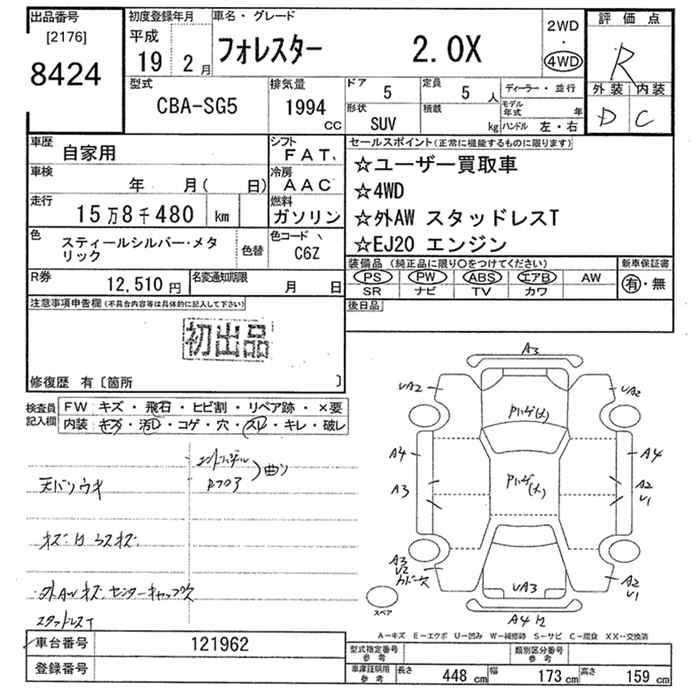 出品番号
[2176]
8424
初度登録年月
平成
19年 2月
車名・グレード
フォレスター 2.0X
2WD
・
4WD
評価点
R
外装 内装
D C
型式
CBA-SG5
排気量
1994
CC
ドア
5
定員
5 人
ディーラー・並行
形状
SUV
積載
kg
モデル年式 年
ハンドル 左・右
車歴
自家用
シフト
FAT
車検
年 月( 日)
冷房
AAC
走行
15万8千480 km
燃料
ガソリン
色
スティールシルバー・メタリック
色替
色コード
C6Z
R券
12,510円
名変通知期限
月 日
セールスポイント(正常に機能するものに限ります)
☆ユーザー買取車
☆4WD
☆外AW スタッドレスT
☆EJ20 エンジン
装備品(純正品に限り○をつけてください)
PS PW ABS エアB AW
SR ナビ TV カワ
新車保証書
有・無
後日品
注意事項申告欄(不具合内容等は具体的に記入して下さい)
初出品
修復歴 有〔箇所 〕
検査員記入欄
FW キズ・飛石・ヒビ割・リペア跡・×要
内装 キズ・汚レ・コゲ・穴・スレ・キレ・破レ
曲リ
天バリウキ
外AWキズ センターキャップ欠
スタッドレスT
A3
UA2 UA2
A4 A4
A3 A2
U1
A3
U2
A2
U1
UA3
A4
スペア
A-キズ E-エクボ U-凹み W-補修跡 S-サビ C-腐食 XX-交換済
車台番号
121962
登録番号
型式指定番号
参考
類別区分番号
参考
車庫証明用
参考
長さ 448 cm 幅 173 cm 高さ 159 cm